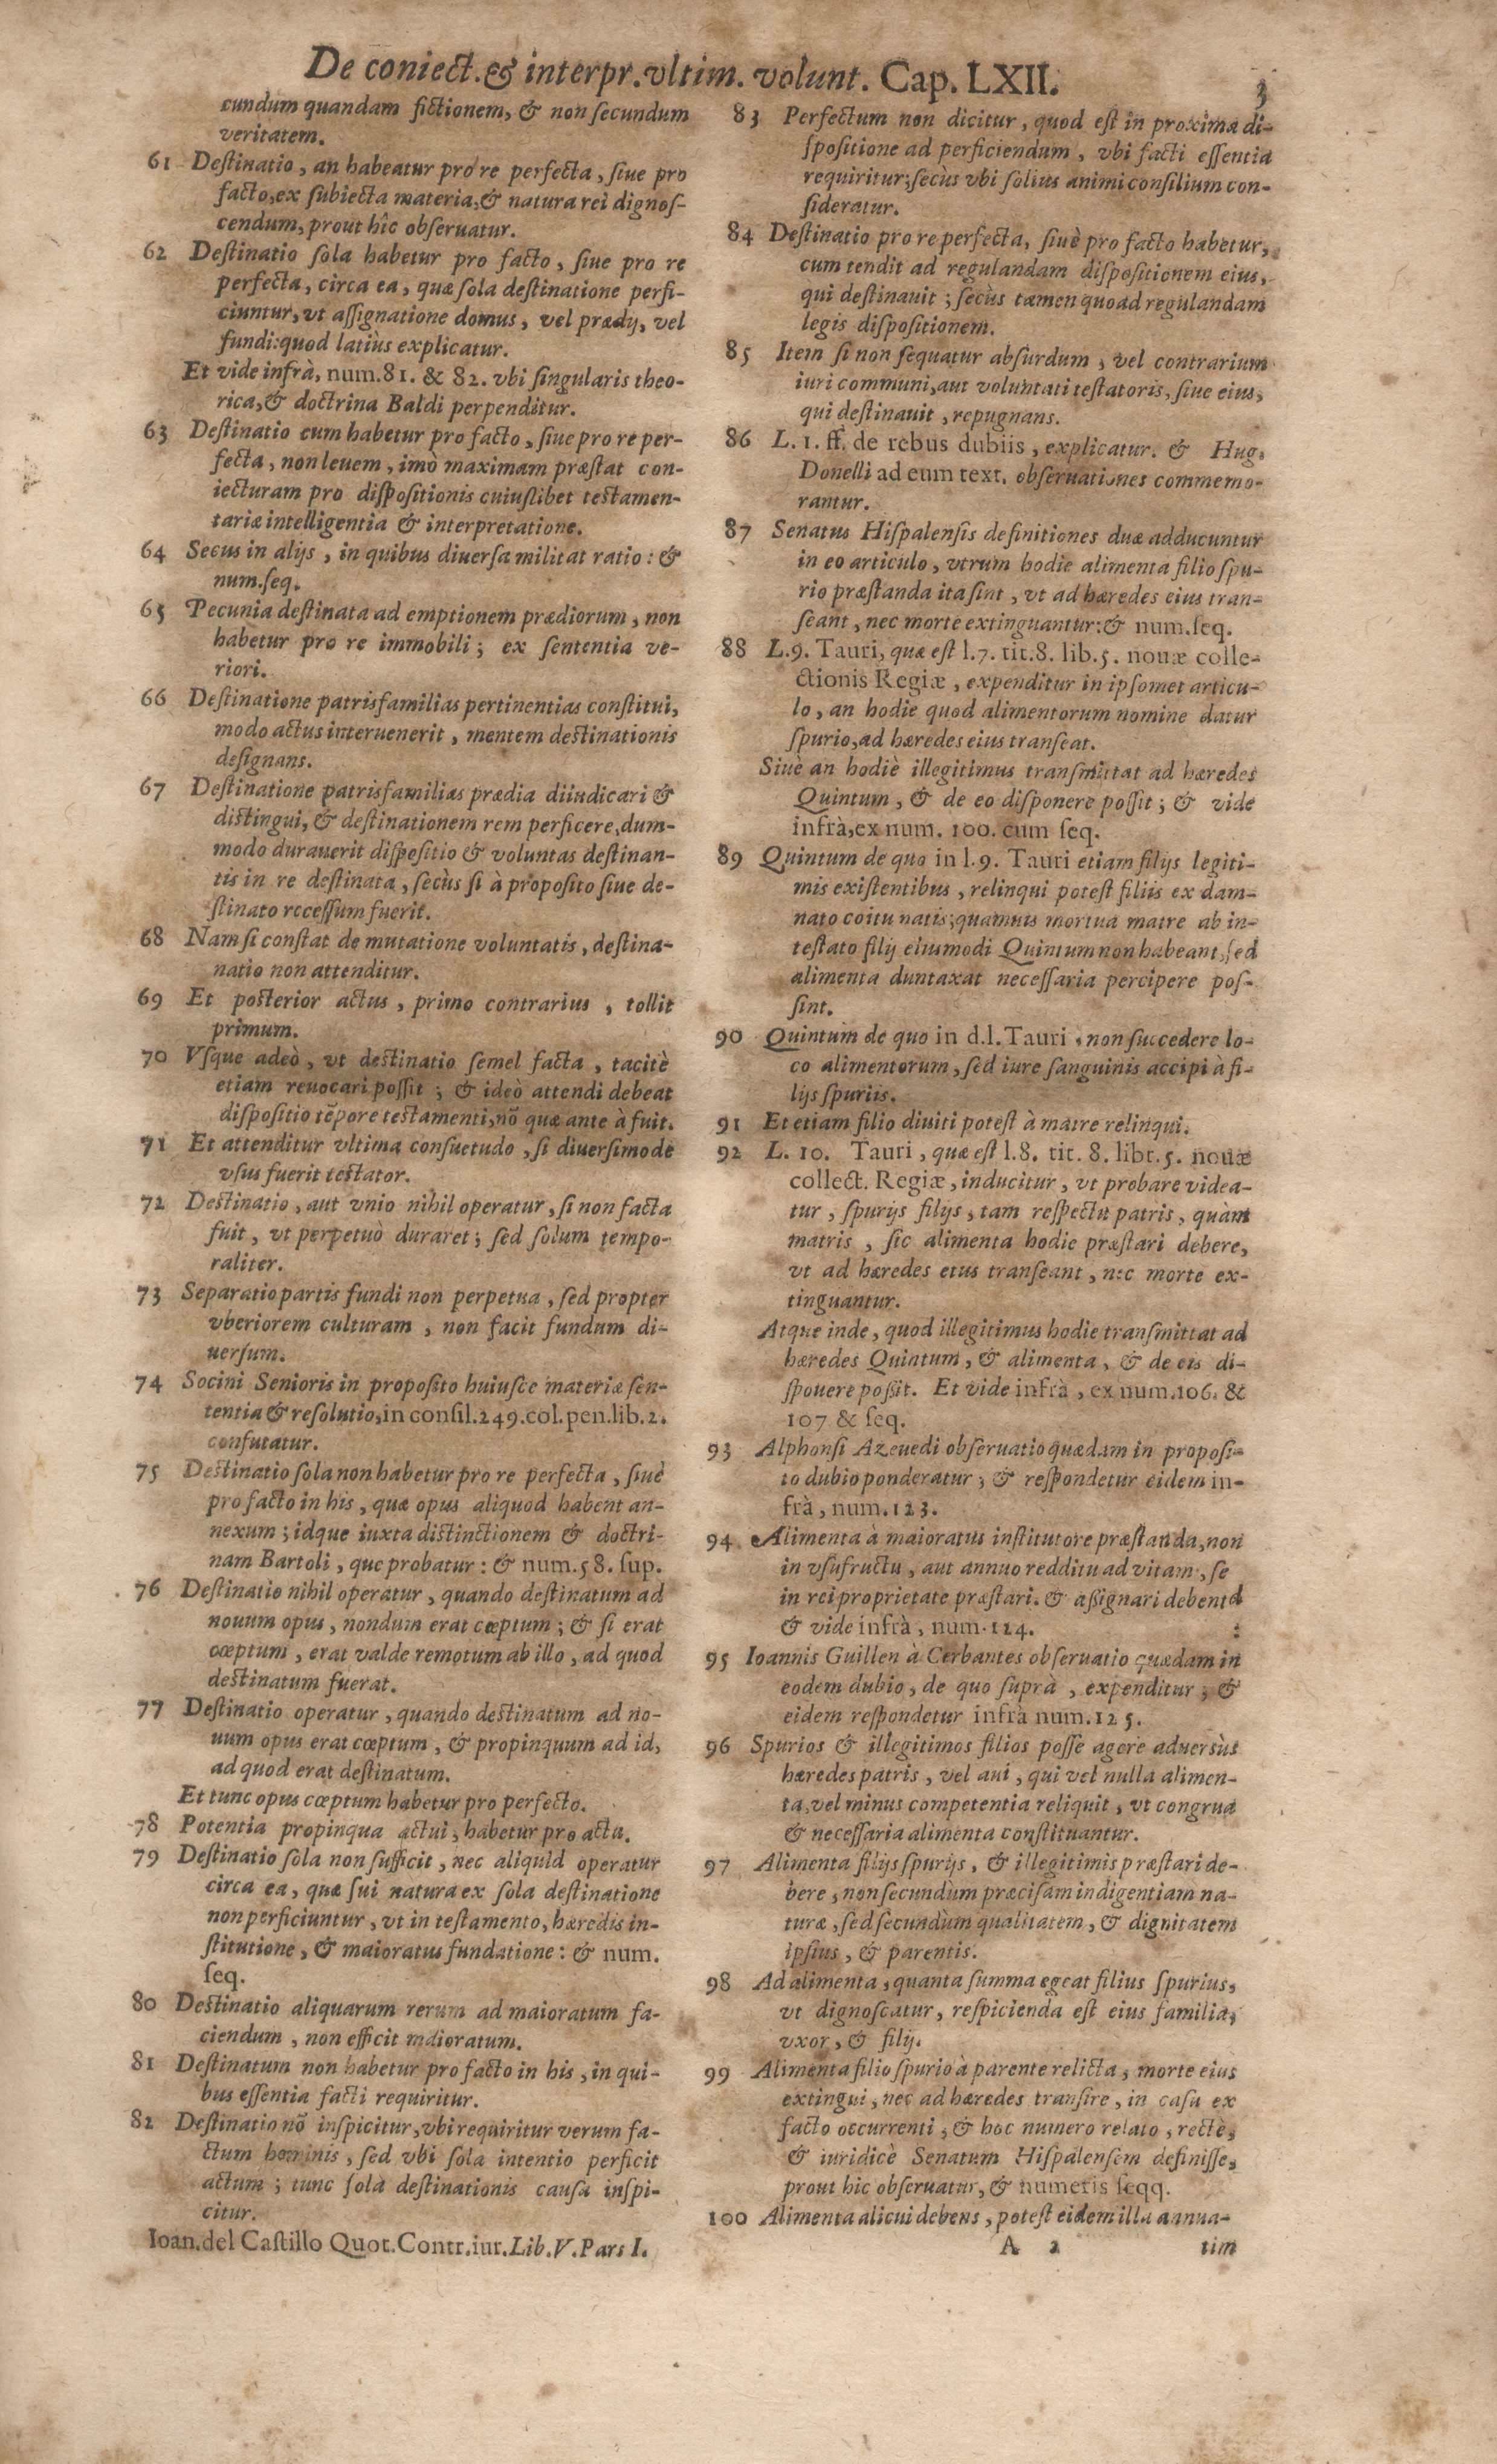 De coniect. & interpr. vltim. volunt. Cap. LXII.
3
cundum quandam fictionem, & non ſecundum
veritatem.
61 Deſtinatio, an habeatur pro re perfecta, ſiue pro
facto, ex ſubiecta materia, & natura rei dignoſ-
cendum, prout hîc obſeruatur.
62 Deſtinatio ſola habetur pro facto, ſiue pro re
perfecta, circa ea, quæ ſola deſtinatione perfi-
ciuntur, vt aſſignatione domus, vel prædij, vel
fundi: quod latiùs explicatur.
Et vide infrà, num. 81. & 82. vbi ſingularis theo-
rica, & doctrina Baldi perpenditur.
63 Deſtinatio cum habetur pro facto, ſiue pro re per-
fecta, non leuem, imò maximam præſtat con-
iecturam pro diſpoſitionis cuiuſlibet teſtamen-
tariæ intelligentia & interpretatione.
64 Secus in alijs, in quibus diuerſa militat ratio: &
num. ſeq.
65 Pecunia deſtinata ad emptionem prædiorum, non
habetur pro re immobili; ex ſententia ve-
riori.
66 Deſtinatione patrisfamilias pertinentias conſtitui,
modo actus interuenerit, mentem deſtinationis
deſignans.
67 Deſtinatione patrisfamilias prædia diiudicari &
diſtingui, & deſtinationem rem perficere, dum-
modo durauerit diſpoſitio & voluntas deſtinan-
tis in re deſtinata, ſecùs ſi à propoſito ſiue de-
ſtinato receſſum fuerit.
68 Nam ſi conſtat de mutatione voluntatis, deſtina-
natio non attenditur.
69 Et poſterior actus, primo contrarius, tollit
primum.
70 Vſque adeò, vt deſtinatio ſemel facta, tacitè
etiam reuocari poſſit; & ideò attendi debeat
diſpoſitio tẽpore teſtamenti, nõ quæ ante à fuit.
71 Et attenditur vltima conſuetudo, ſi diuerſimode
vſus fuerit teſtator.
72 Deſtinatio, aut vnio nihil operatur, ſi non facta
fuit, vt perpetuò duraret; ſed ſolum tempo-
raliter.
73 Separatio partis fundi non perpetua, ſed propter
vberiorem culturam, non facit fundum di-
uerſum.
74 Socini Senioris in propoſito huiuſce materiæ ſen-
tentia & reſolutio, in conſil. 249. col. pen. lib. 2.
confutatur.
75 Deſtinatio ſola non habetur pro re perfecta, ſiuè
pro facto in his, quæ opus aliquod habent an-
nexum; idque iuxta diſtinctionem & doctri-
nam Bartoli, quę probatur: & num. 58. ſup.
76 Deſtinatio nihil operatur, quando deſtinatum ad
nouum opus, nondum erat cœptum; & ſi erat
cœptum, erat valde remotum ab illo, ad quod
deſtinatum fuerat.
77 Deſtinatio operatur, quando deſtinatum ad no-
uum opus erat cœptum, & propinquum ad id,
ad quod erat deſtinatum.
Et tunc opus cœptum habetur pro perfecto.
78 Potentia propinqua actui, habetur pro acta.
79 Deſtinatio ſola non ſufficit, nec aliquid operatur
circa ea, quæ ſui natura ex ſola deſtinatione
non perficiuntur, vt in teſtamento, hæredis in-
ſtitutione, & maioratus fundatione: & num.
ſeq.
80 Deſtinatio aliquarum rerum ad maioratum fa-
ciendum, non efficit maioratum.
81 Deſtinatum non habetur pro facto in his, in qui-
bus eſſentia facti requiritur.
82 Deſtinatio nõ inſpicitur, vbi requiritur verum fa-
ctum hominis, ſed vbi ſola intentio perficit
actum; tunc ſola deſtinationis cauſa inſpi-
citur.
Ioan. del Caſtillo Quot. Contr. iur. Lib. V. Pars I.
83 Perfectum non dicitur, quod eſt in proxima di-
ſpoſitione ad perficiendum, vbi facti eſſentia
requiritur; ſecùs vbi ſolius animi conſilium con-
ſideratur.
84 Deſtinatio pro re perfecta, ſiuè pro facto habetur,
cum tendit ad regulandam diſpoſitionem eius,
qui deſtinauit; ſecùs tamen quoad regulandam
legis diſpoſitionem.
85 Item ſi non ſequatur abſurdum, vel contrarium
iuri communi, aut voluntati teſtatoris, ſiue eius,
qui deſtinauit, repugnans.
86 L. 1. ff. de rebus dubiis, explicatur. & Hug.
Donelli ad eum text. obſeruationes commemo-
rantur.
87 Senatus Hiſpalenſis definitiones duæ adducuntur
in eo articulo, vtrum hodie alimenta filio ſpu-
rio præſtanda ita ſint, vt ad hæredes eius tran-
ſeant, nec morte extinguantur: & num. ſeq.
88 L. 9. Tauri, quæ eſt l. 7. tit. 8. lib. 5. nouæ colle-
ctionis Regiæ, expenditur in ipſomet articu-
lo, an hodie quod alimentorum nomine datur
ſpurio, ad hæredes eius tranſeat.
Siuè an hodiè illegitimus tranſmittat ad hæredes
Quintum, & de eo diſponere poſſit; & vide
infrà, ex num. 100. cum ſeq.
89 Quintum de quo in l. 9. Tauri etiam filijs legiti-
mis exiſtentibus, relinqui poteſt filiis ex dam-
nato coitu natis; quamuis mortua matre ab in-
teſtato filij eiuſmodi Quintum non habeant, ſed
alimenta duntaxat neceſſaria percipere poſ-
ſint.
90 Quintum de quo in d. l. Tauri, non ſuccedere lo-
co alimentorum, ſed iure ſanguinis accipi à fi-
lijs ſpuriis.
91 Et etiam filio diuiti poteſt à matre relinqui.
92 L. 10. Tauri, quæ eſt l. 8. tit. 8. libr. 5. nouæ
collect. Regiæ, inducitur, vt probare videa-
tur, ſpurijs filijs, tam reſpectu patris, quàm
matris, ſic alimenta hodie præſtari debere,
vt ad hæredes etus tranſeant, nec morte ex-
tinguantur.
Atque inde, quod illegitimus hodie tranſmittat ad
hæredes Quintum, & alimenta, & de eis di-
ſponere poſſit. Et vide infrà, ex num. 106. &
107 & ſeq.
93 Alphonſi Azeuedi obſeruatio quædam in propoſi-
to dubio ponderatur; & reſpondetur eidem in-
frà, num. 123.
94 Alimenta à maioratus inſtitutore præſtanda, non
in vſufructu, aut annuo redditu ad vitam, ſe
in rei proprietate præſtari. & aſſignari debent d
& vide infrà, num. 124. :
95 Ioannis Guillen à Cerbantes obſeruatio quædam in
eodem dubio, de quo ſuprà, expenditur; &
eidem reſpondetur infrà num. 125.
96 Spurios & illegitimos filios poſſe agere aduersùs
hæredes patris, vel aui, qui vel nulla alimen-
ta, vel minus competentia reliquit, vt congrua
& neceſſaria alimenta conſtituantur.
97 Alimenta filijs ſpurijs, & illegitimis præſtari de-
bere, non ſecundùm præciſam indigentiam na-
turæ, ſed ſecundùm qualitatem, & dignitatem
ipſius, & parentis.
98 Ad alimenta, quanta ſumma egeat filius ſpurius,
vt dignoſcatur, reſpicienda eſt eius familia,
vxor, & filij.
99 Alimenta filio ſpurio à parente relicta, morte eius
extingui, nec ad hæredes tranſire, in caſu ex
facto occurrenti, & hoc numero relato, rectè,
& iuridicè Senatum Hiſpalenſem definiſſe,
prout hic obſeruatur, & numeris ſeqq.
100 Alimenta alicui debens, poteſt eidem illa annua-
A 2
tim